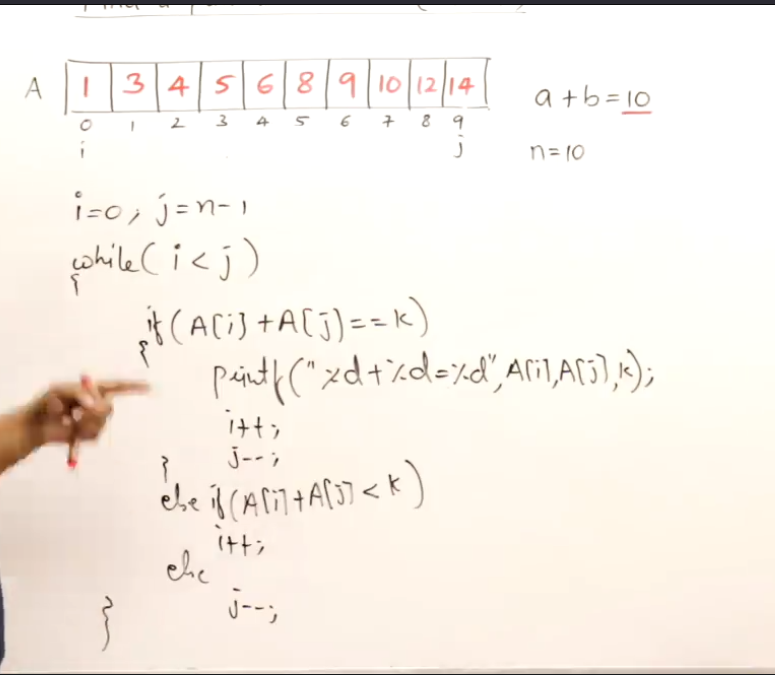 A 1 3 4 5 6 8 9 10 12 14
0 1 2 3 4 5 6 7 8 9
i j
a+b=10
n=10
i=0; j=n-1
while(i<j)
{
if(A[i]+A[j]==k)
{
printf("%d+%d=%d",A[i],A[j],k);
i++;
j--;
}
else if(A[i]+A[j]<k)
i++;
else
j--;
}